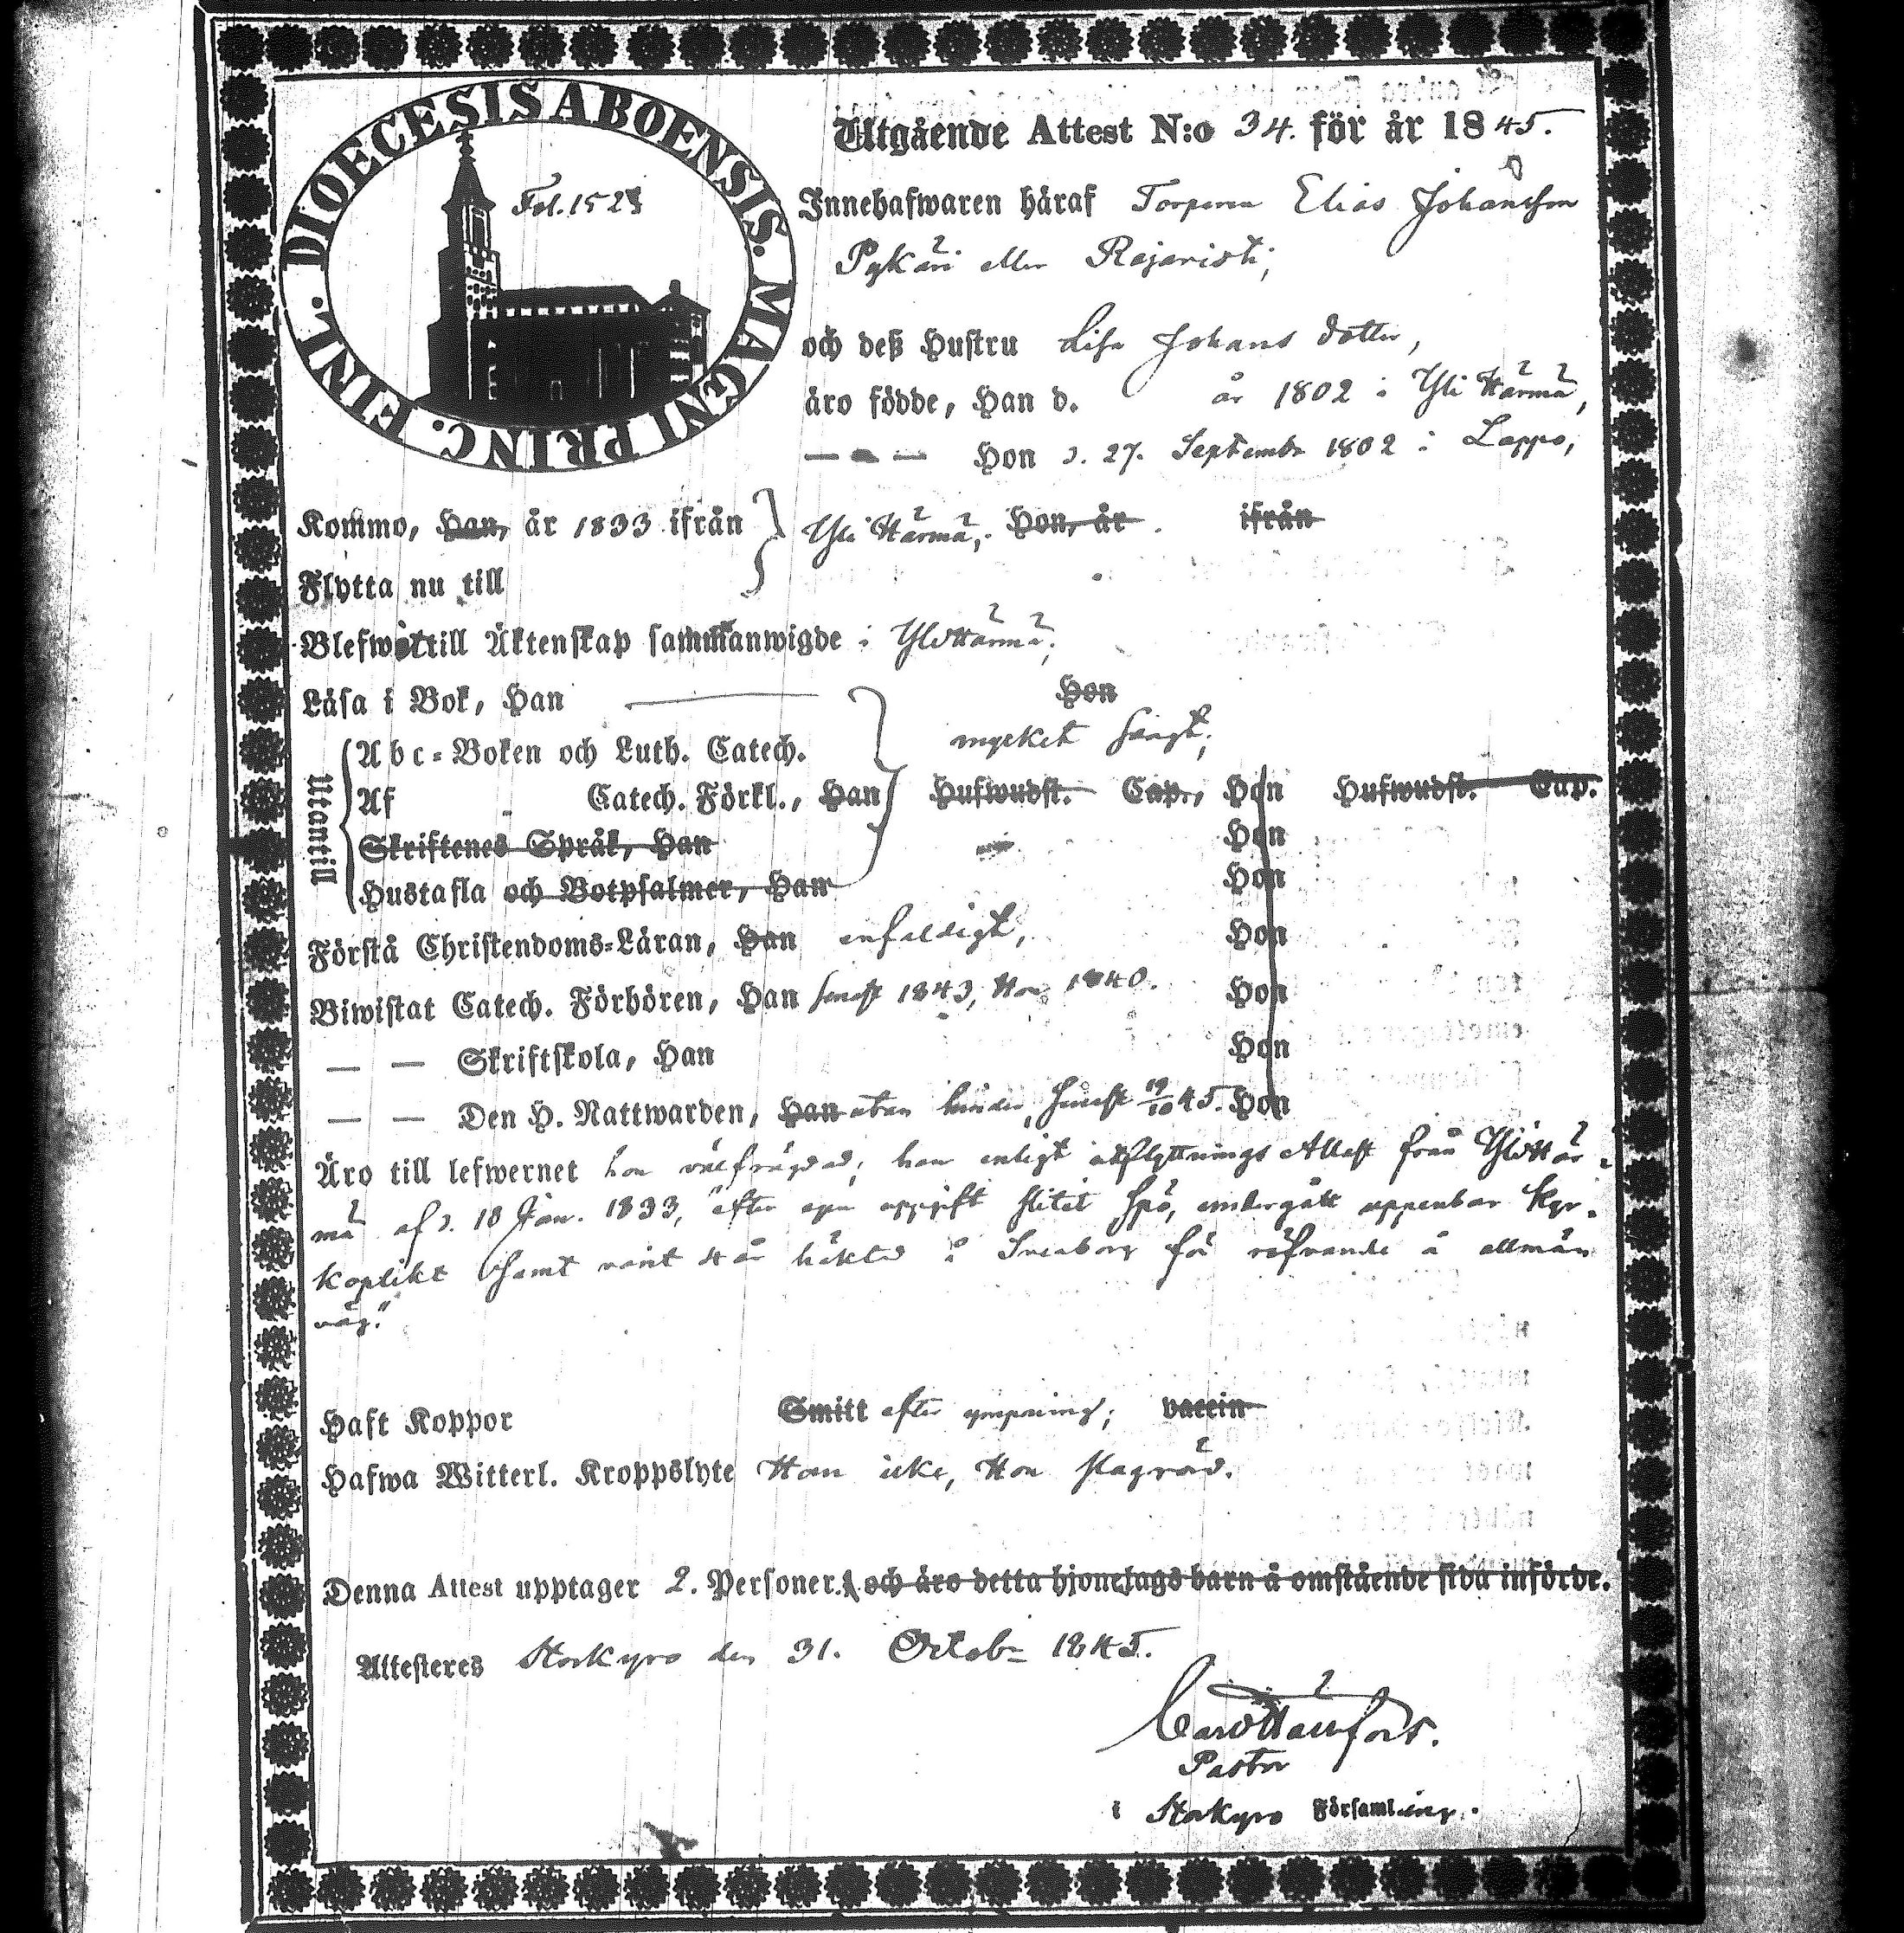 DIOECESIS ABOENSIS. MAGNI PRINC. FINL.
Fol. 152
Utgående Attest N:o 34. för år 1845.
Innehafwaren häraf Torparen Elias Johansson
Pykäri eller Rajaristi,
och deß Hustru Lisa Johans dotter,
äro födde, Han d. år 1802 i Yli Härmä,
— — Hon d. 27. Septembr 1802 i Lappo,
Kommo, Han, år 1833 ifrån Yli Härmä, Hon, år . ifrån
Flytta nu till
Blefwo till Äktenskap sammanwigde i Yli Härmä,
Läsa i Bok, Han Hon
mycket swagt,
Utantill
Abc-Boken och Luth. Catech.
Af Catech. Förkl., Han Hufwudst. Cap., Hon Hufwudst. Cap.
Skriftenes Språk, Han Hon
Hustafla och Botpsalmer, Han Hon
Förstå Christendoms-Läran, Han enfaldigt, Hon
Biwistat Catech. Förhören, Han senast 1843, Hon 1840. Hon
— — Skriftskola, Han Hon
— — Den H. Nattwarden, Han utan hinder, senast 19/10 45. Hon
Äro till lefwernet hon välfrägdad; han enligt utflyttnings Attest från Yli Här-
mä af d. 18 Jan. 1833, "efter egen uppgift slitit spö, undergått uppenbar kyr-
koplikt samt varit 4 år häktad å Sveaborg för röfvande å allmän
väg."
Haft Koppor Smitt efter ympning; vaccin
Hafwa Witterl. Kroppslyte Han icke, Hon
Denna Attest upptager 2. Personer. och äro detta hjonelags barn å omstående sida införde.
Attesteres Storkyro den 31. Octobr 1845.
Pastor
i Storkyro Församling.